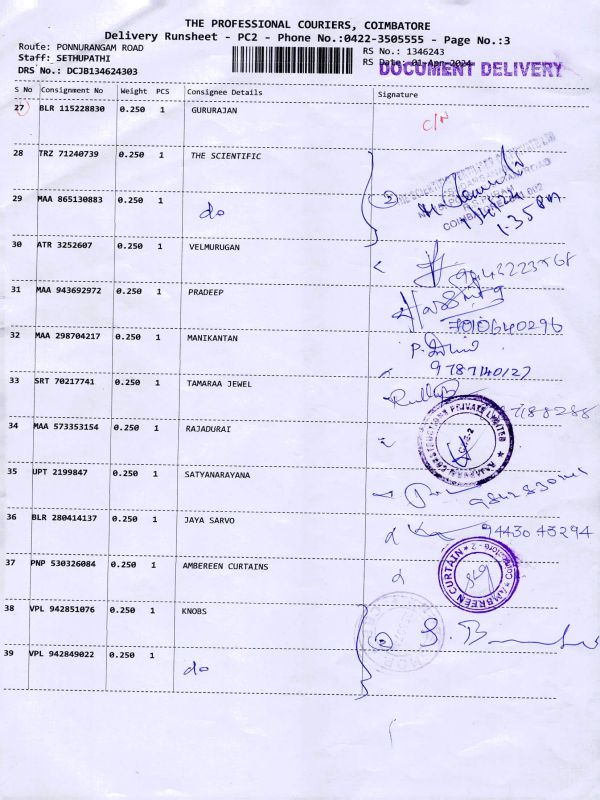 THE PROFESSIONAL COURIERS, COIMBATORE
Delivery Runsheet - PC2 - Phone No.:0422-3505555 - Page No.:3
Route: PONNURANGAM ROAD
RS No.: 1346243
Staff: SETHUPATHI
RS Date: 01-Apr-2024
DOCUMENT DELIVERY
DRS No.: DCJB134624303
S No Consignment No Weight PCS Consignee Details Signature
27 BLR 115228830 0.250 1 GURURAJAN C/N
28 TRZ 71240739 0.250 1 THE SCIENTIFIC
29 MAA 865130883 0.250 1 do 2
1.35 Pm
30 ATR 3252607 0.250 1 VELMURUGAN
31 MAA 943692972 0.250 1 PRADEEP
7010640296
32 MAA 298704217 0.250 1 MANIKANTAN
9787140127
33 SRT 70217741 0.250 1 TAMARAA JEWEL
34 MAA 573353154 0.250 1 RAJADURAI
35 UPT 2199847 0.250 1 SATYANARAYANA
36 BLR 280414137 0.250 1 JAYA SARVO
94430 43294
37 PNP 530326084 0.250 1 AMBEREEN CURTAINS
AMBREEN CURTAIN
38 VPL 942851076 0.250 1 KNOBS
2
39 VPL 942849022 0.250 1 do